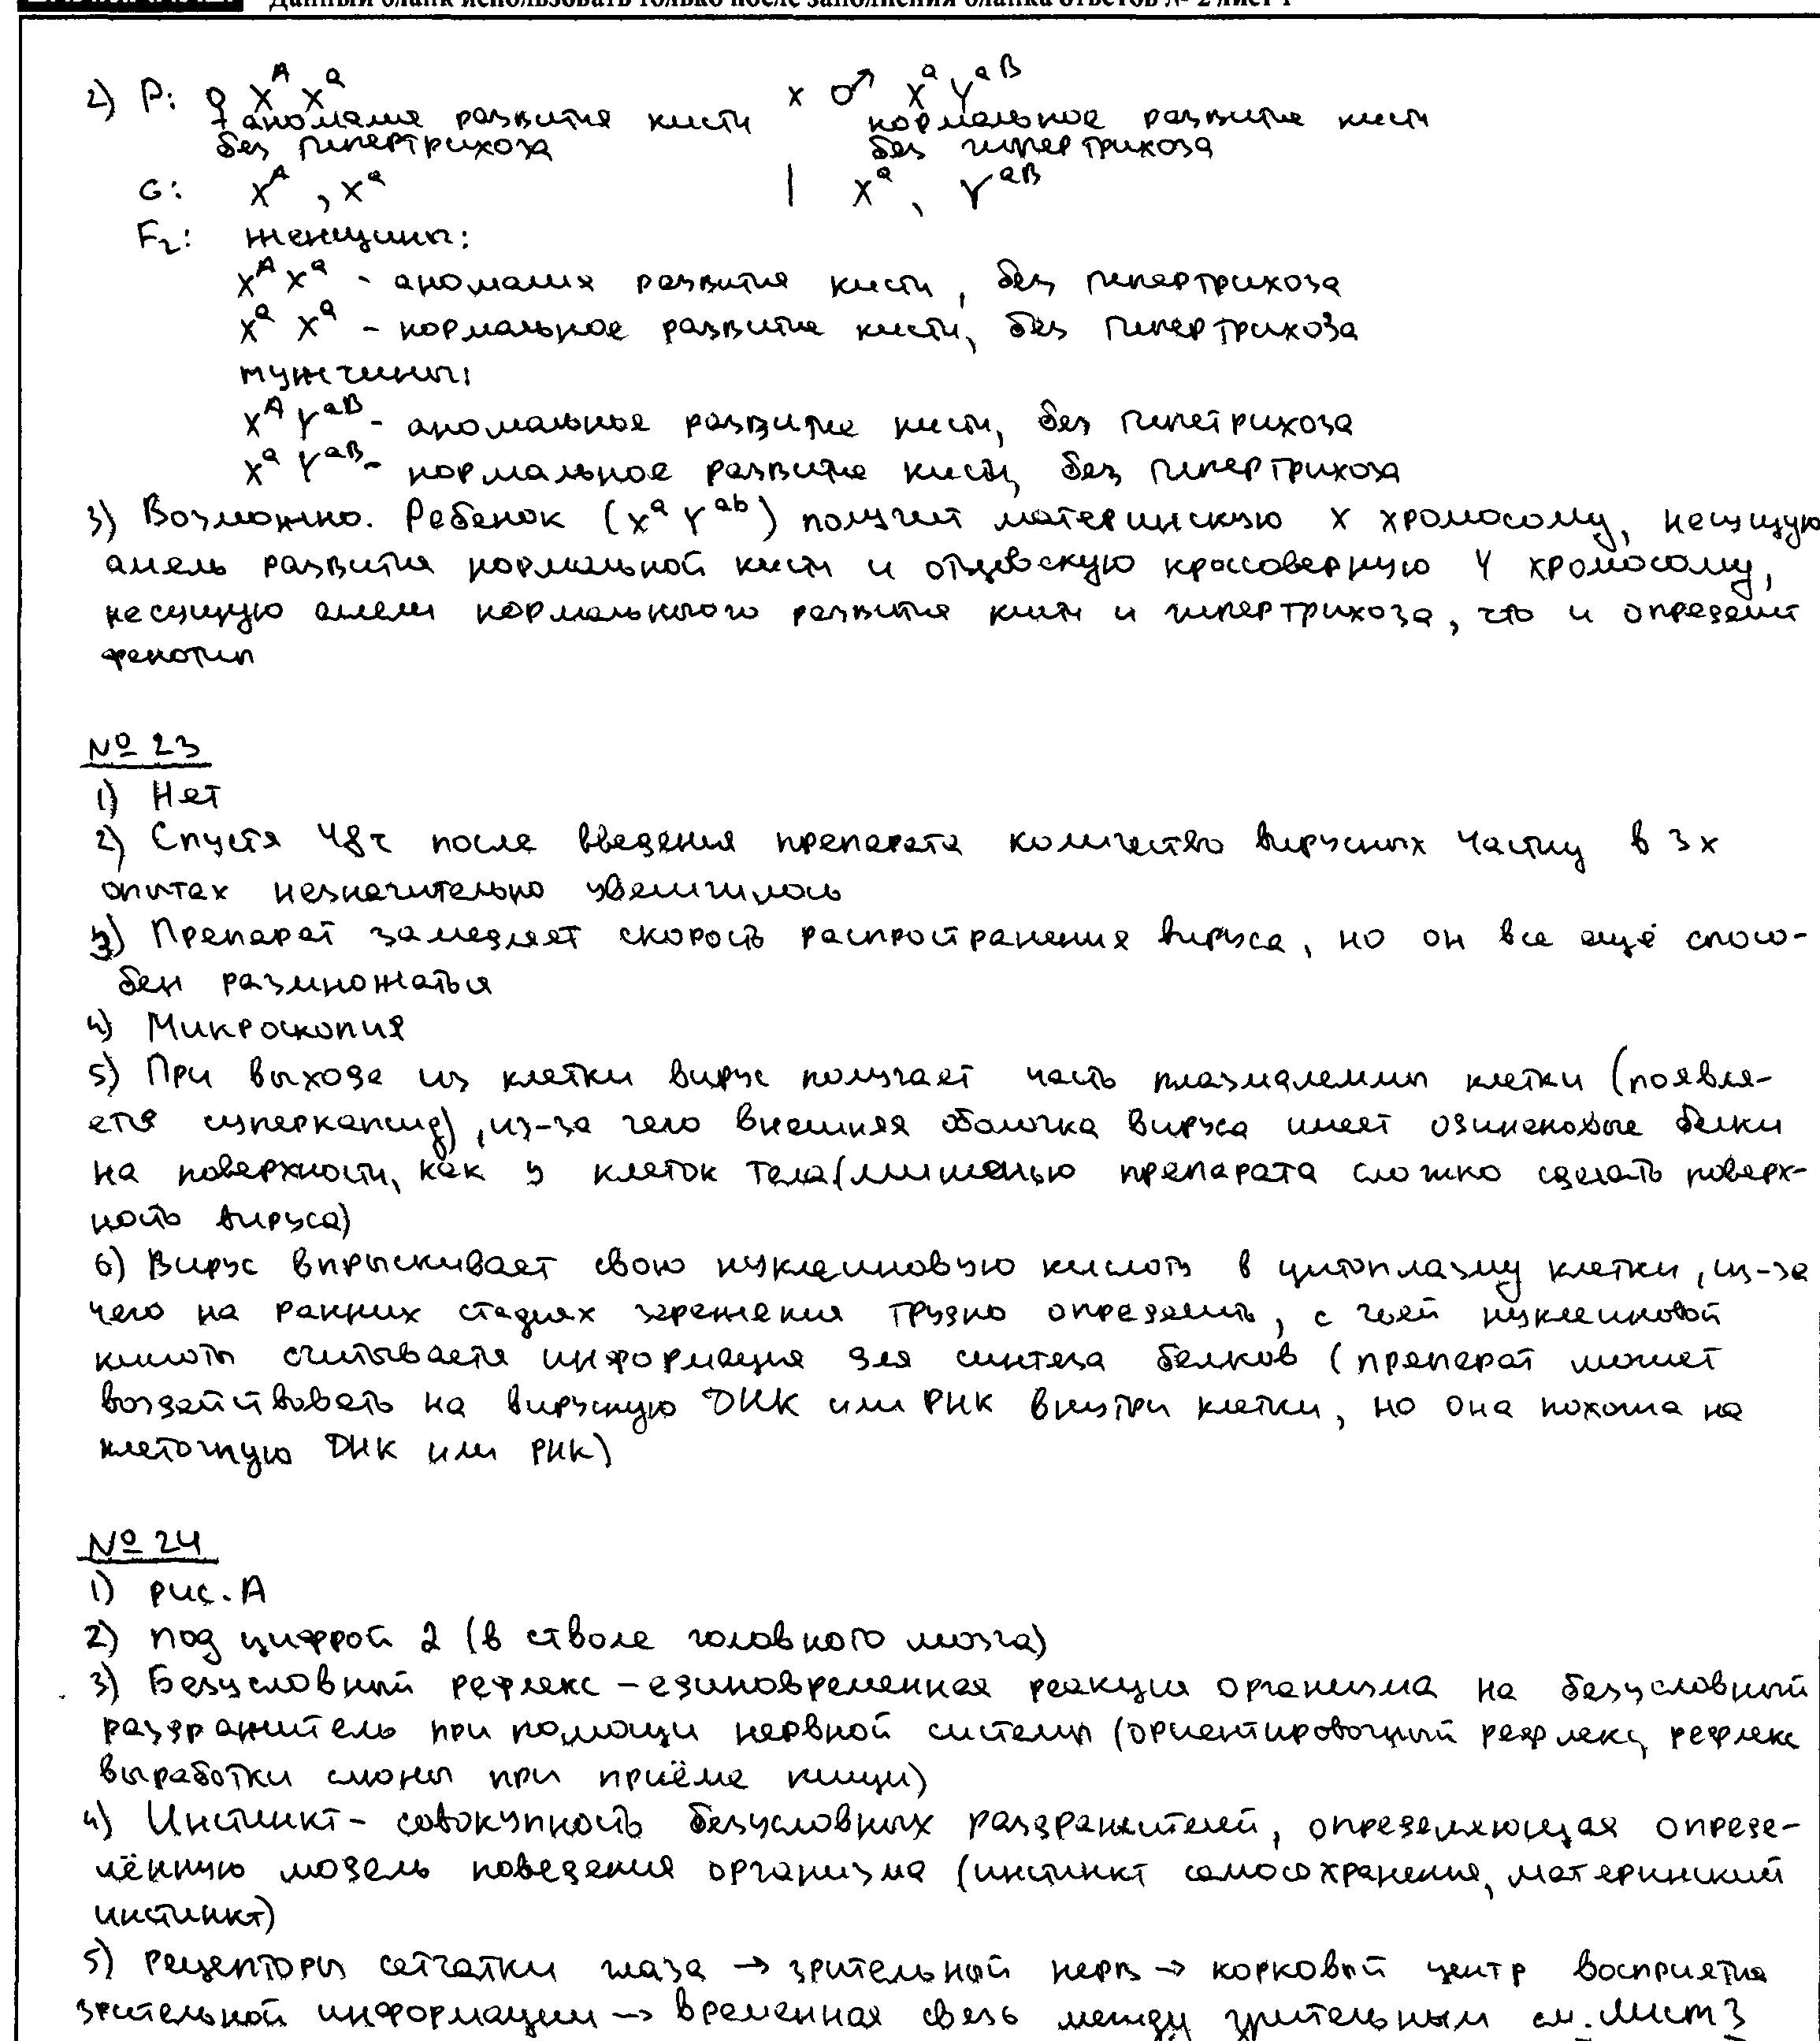 Данный бланк использовать только после заполнения бланка ответов № 2 лист 1
2) P: ♀ X^A X^a × ♂ X^a Y^aB
аномалия развития кисти нормальное развитие кисти
без гипертрихоза без гипертрихоза
G: X^A, X^a | X^a, Y^aB
F2: женщины:
X^A X^a - аномалия развития кисти, без гипертрихоза
X^a X^a - нормальное развитие кисти, без гипертрихоза
мужчины:
X^A Y^aB - аномальное развитие кисти, без гипетрихоза
X^a Y^aB - нормальное развитие кисти, без гипертрихоза
3) Возможно. Ребенок (X^a Y^ab) получит материнскую X хромосому, несущую
алель развития нормальной кисти и отцовскую кроссоверную Y хромосому,
несущую алели нормального развития кисти и гипертрихоза, что и определит
фенотип
№ 23
1) Нет
2) Спустя 48ч после введения препарата количество вирусных частиц в 3х
опытах незначительно увеличилось
3) Препарат замедляет скорость распространения вируса, но он все ещё спосо-
бен размножаться
4) Микроскопия
5) При выходе из клетки вирус получает часть плазмалеммы клетки (появля-
ется суперкапсид), из-за чего внешняя оболочка вируса имеет одинаковые белки
на поверхности, как у клеток тела (мишенью препарата сложно сделать поверх-
ность вируса)
6) Вирус впрыскивает свою нуклеиновую кислоту в цитоплазму клетки, из-за
чего на ранних стадиях заражения трудно определить, с чьей нуклеиновой
кислоты считывается информация для синтеза белков (препарат может
воздействовать на вирусную ДНК или РНК внутри клетки, но она похожа на
клеточную ДНК или РНК)
№ 24
1) рис. А
2) под цифрой 2 (в стволе головного мозга)
3) Безусловный рефлекс - единовременная реакция организма на безусловный
раздражитель при помощи нервной системы (ориентировочный рефлекс, рефлекс
выработки слюны при приёме пищи)
4) Инстинкт - совокупность безусловных раздражителей, определяющая опреде-
лённую модель поведения организма (инстинкт самосохранения, материнский
инстинкт)
5) Рецепторы сетчатки глаза → зрительный нерв → корковый центр восприятия
зрительной информации → временная связь между зрительным см. Лист 3